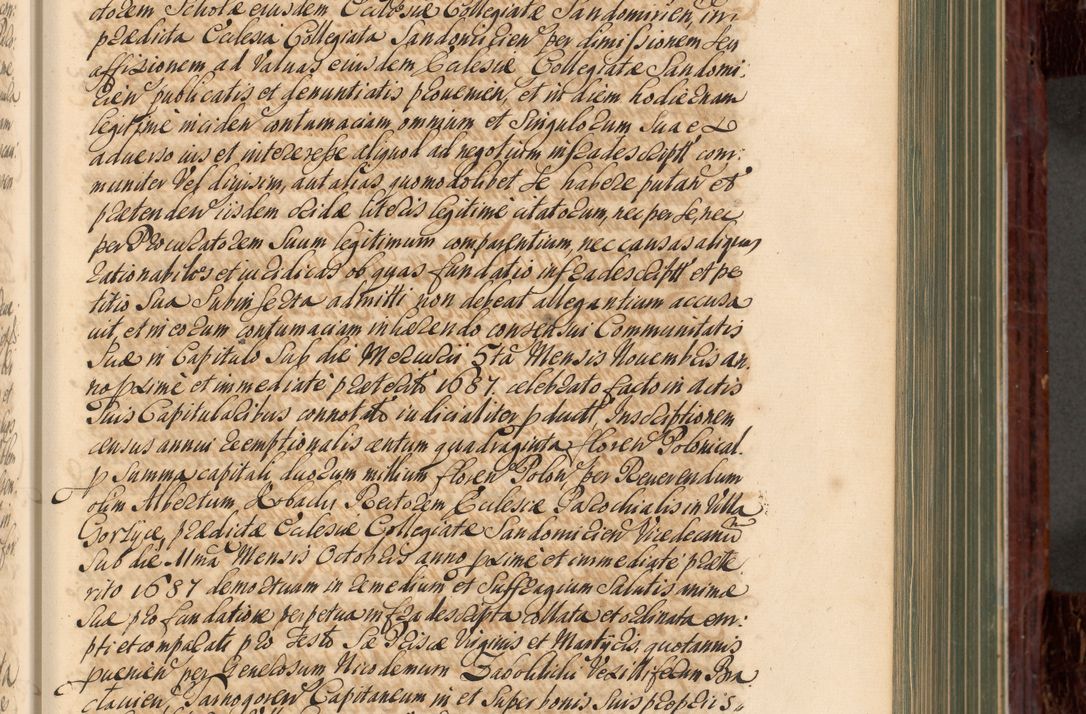 ctorem Scholæ eiusdem Ecclesiæ Collegiatæ Sandomirien, in
prædicta Ecclesia Collegiata Sandomirien per dimissionem seu
affixionem ad Valuas eiusdem Ecclesiæ Collegiatæ Sandomi:
rien publicatis et denuntiatis prouenien, et in diem hodiernam
legitimè inciden contumaciam omnium et Singulorum Sua et
aduerso ius et interesse aliquod ad negotium infrascriptt com:
muniter Vel diuisim, aut alias quomodolibet se habere putan et
prætenden iisdem literis legitimè citatorum, nec per se, nec
per Procuratorem Suum legitimum comparentium, nec causas aliquas
rationabiles et iuridicas ob quas fundatio infradescriptt et pe
titio Sua Subinserta admitti non debeat allegantium accusa
uit, et in eorum contumaciam inhærendo consensui Communitatis
Suæ in Capitulo Sub die Mercurii 5ta Mensis Nouembris an,
no proximè et immediatè præterito 1687 celebrato facto in actis
Suis Capitularibus connotato iudicialiter produxit Inscriptionem
census annui reemptionalis centum quadraginta floren Polonical.
p Summa capitali duorum millium floren Polon per Reuerendum
olim Albertum Rectorem Ecclesiæ Parochialis in Villa
Gorzyce, prædictæ Ecclesiæ Collegiatæ Sandomirien Vicedecanum
Sub die Mensis Octobris anno proximè et immediatè præte,
rito 1687 demortuum in remedium et Suffragium Salutis animæ
Suæ pro fundatione perpetua infra descripta collata et ordinata em:
pti et comparati pro festo Priscæ Virginis et Martyris, quotannis
prouenien per Generosum Nicodemum Vexilliferum Bra
clauien, Tarnogoren Capitaneum in et Super bonis Suis proprijs